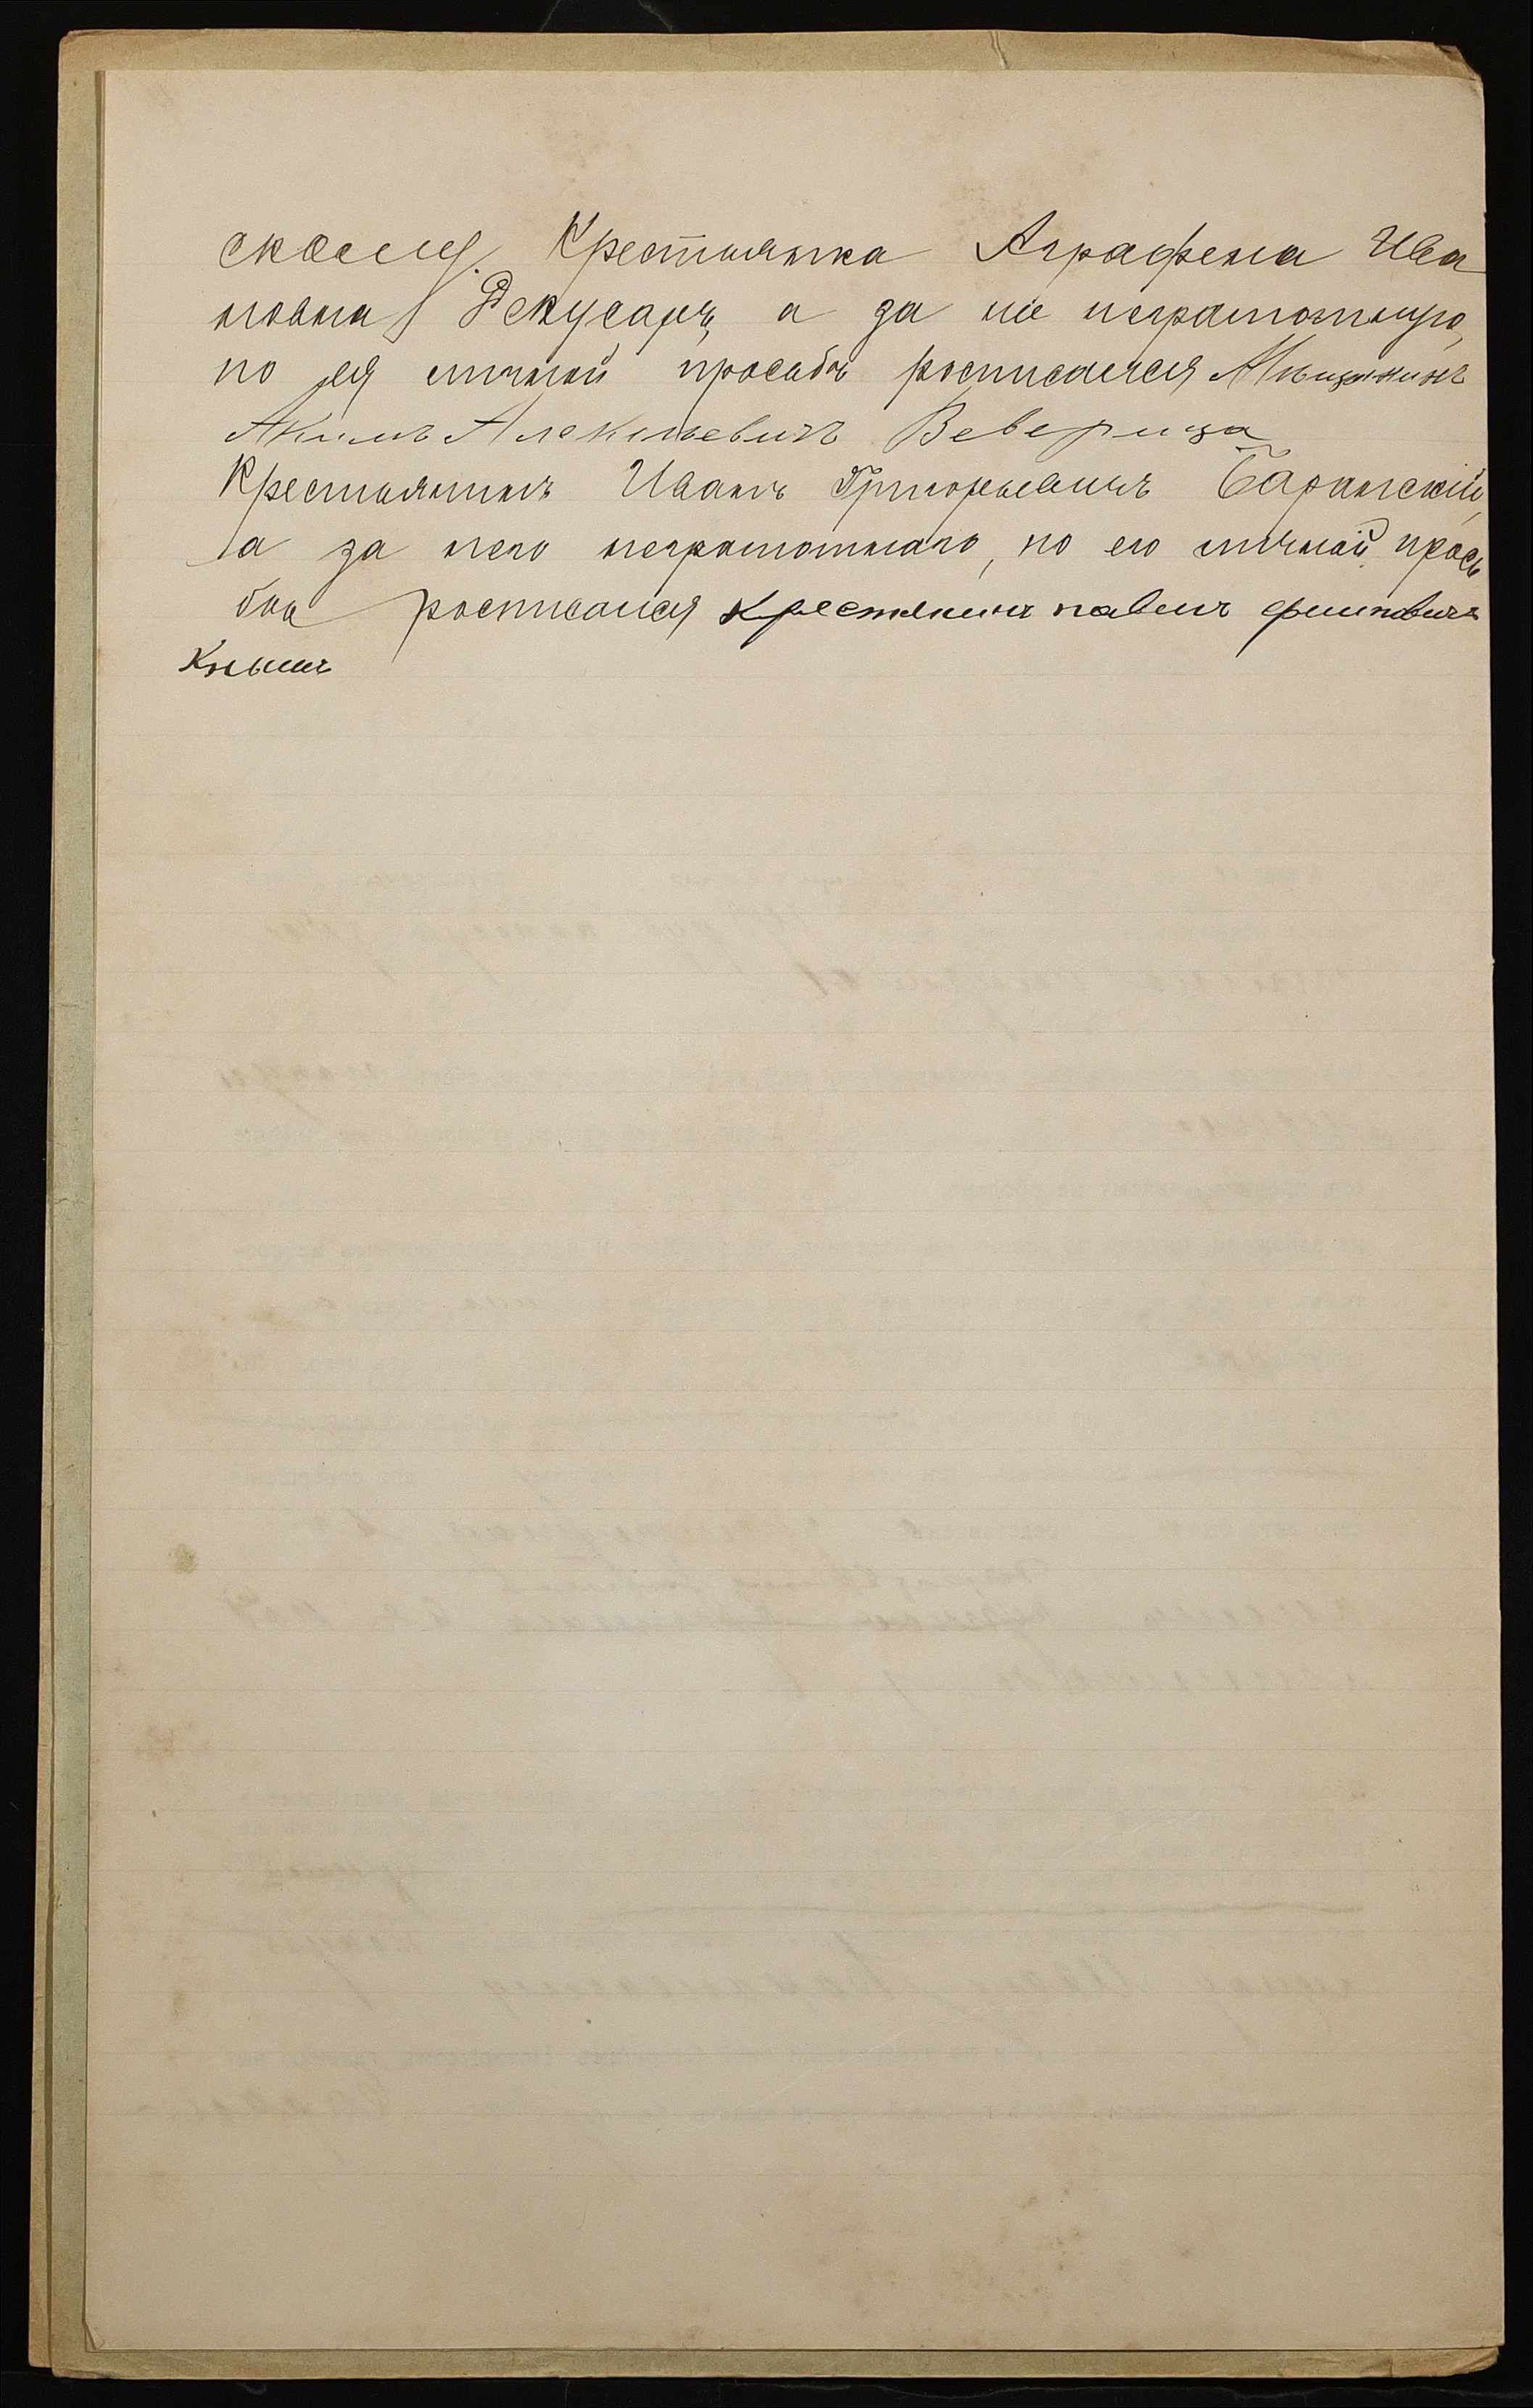 скому. Крестьянка Аграфена Ива
новна Декусаръ, а за нее неграмотную,
по ея личной просьбѣ росписался Мѣщанинъ
Акимъ Алексѣевичъ Веверица
Крестьянинъ Иванъ Григорьевичъ Баранскій,
а за него неграмотнаго, по его личной прось
бѣ росписался Крестянинъ павелъ филиповичъ
Кнышъ